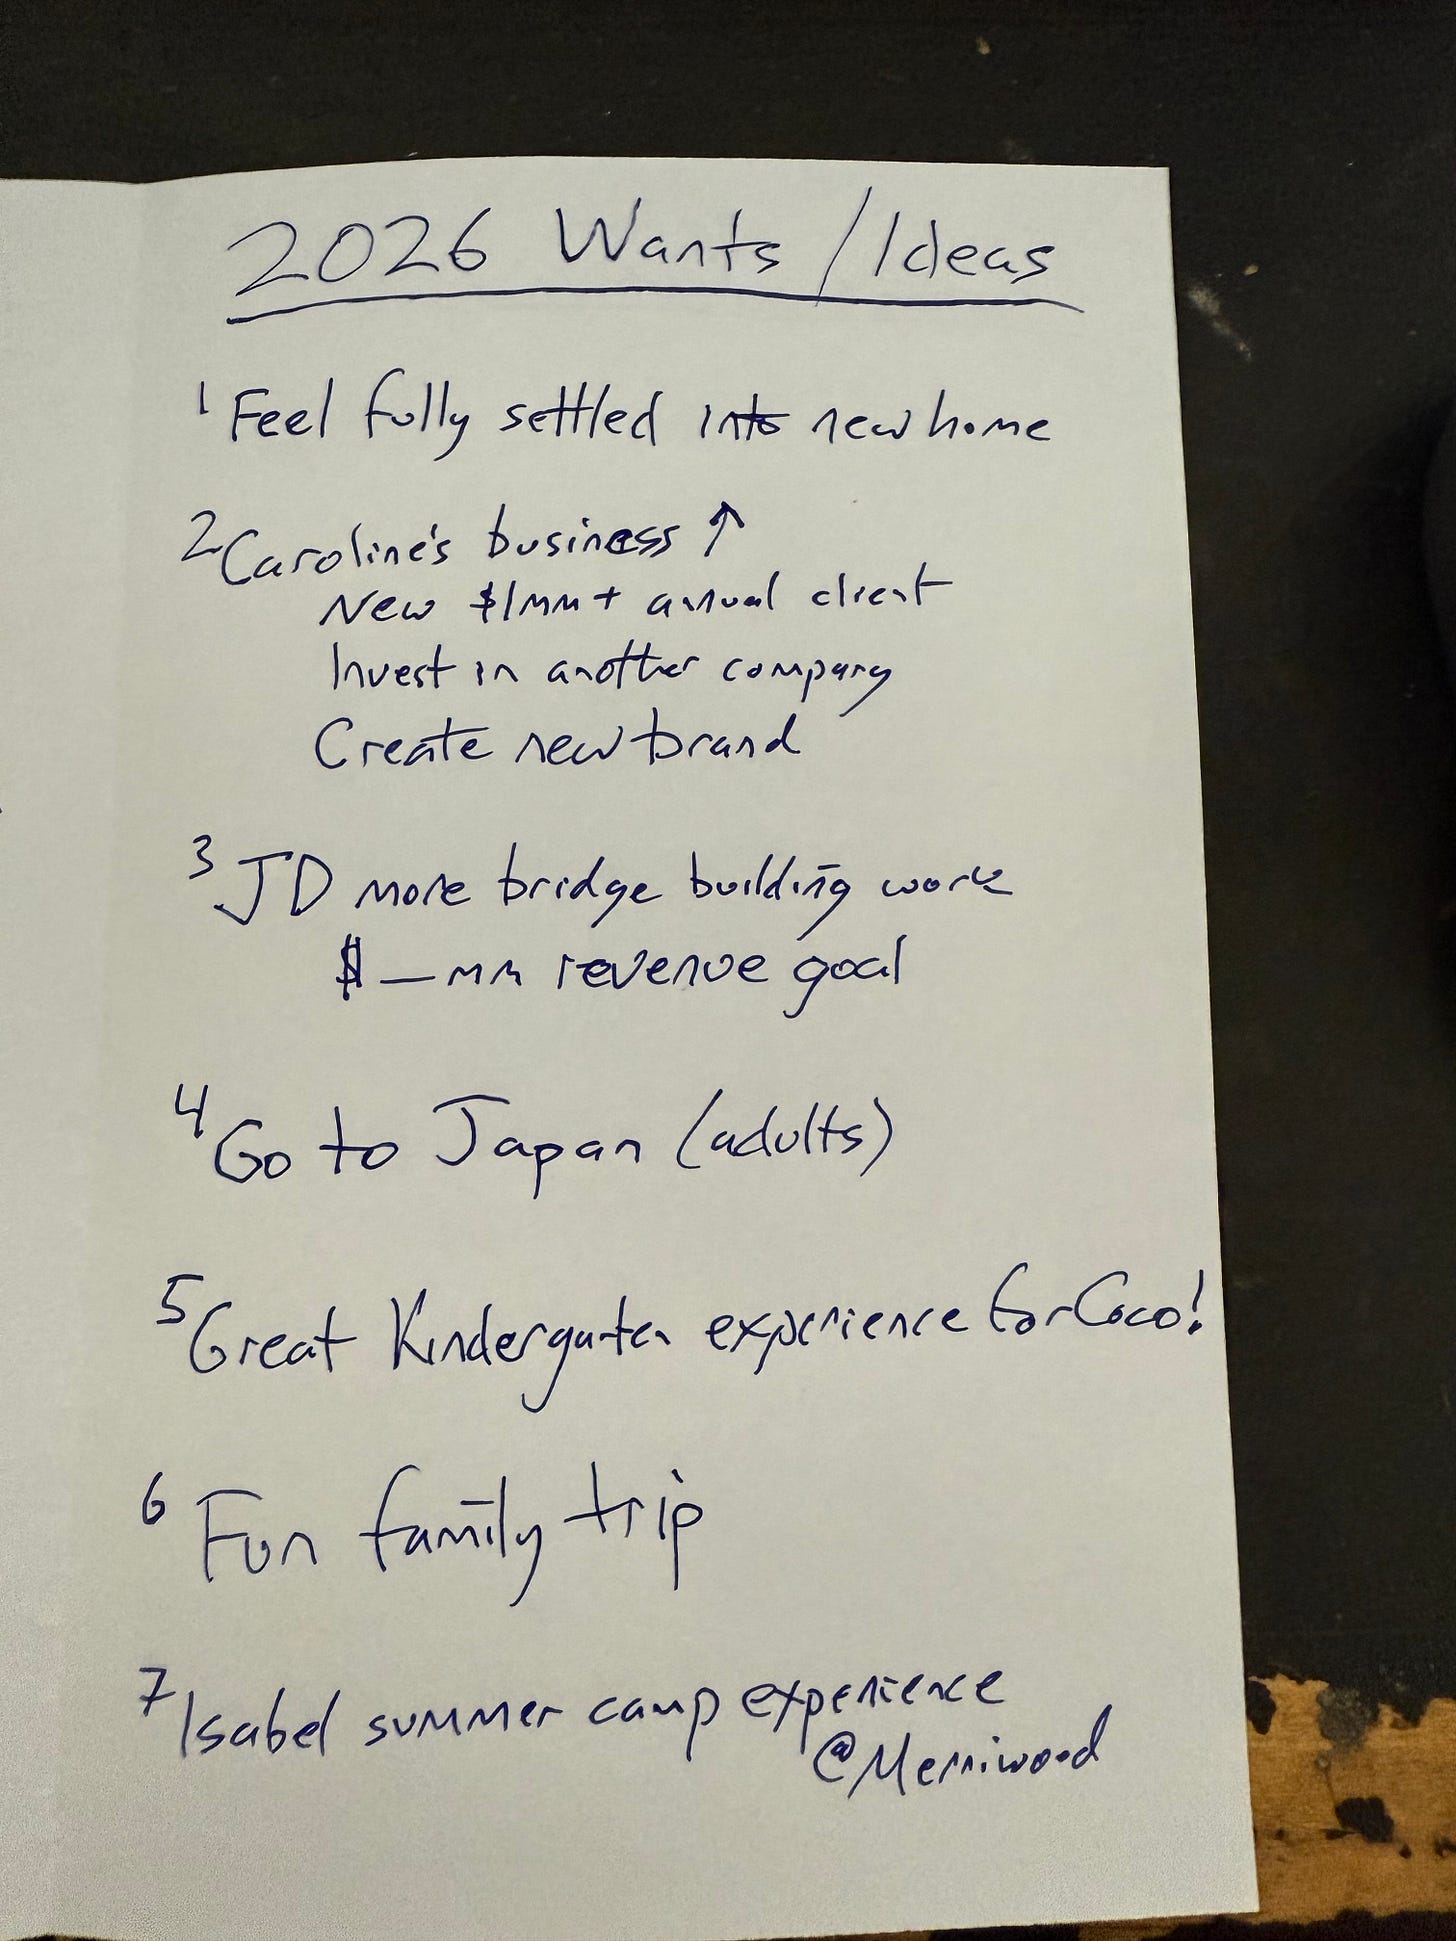 2026 Wants / Ideas
1 Feel fully settled into new home
2 Caroline's business ↑
New $1MM+ annual client
Invest in another company
Create new brand
3 JD more bridge building work
$_MM revenue goal
4 Go to Japan (adults)
5 Great Kindergarten experience for Coco!
6 Fun family trip
7 Isabel summer camp experience
@Merriwood